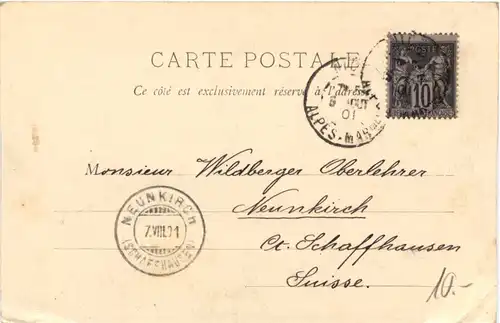 CARTE POSTALE
Ce côté est exclusivement réservé à l'adresse
POSTE
10
AOUT
01
ALPES-MAR
Monsieur Wildberger Oberlehrer
Neunkirch
Ct. Schaffhausen
Suisse.
NEUNKIRCH
7.VIII.01
(SCHAFFHAUSEN)
10.-